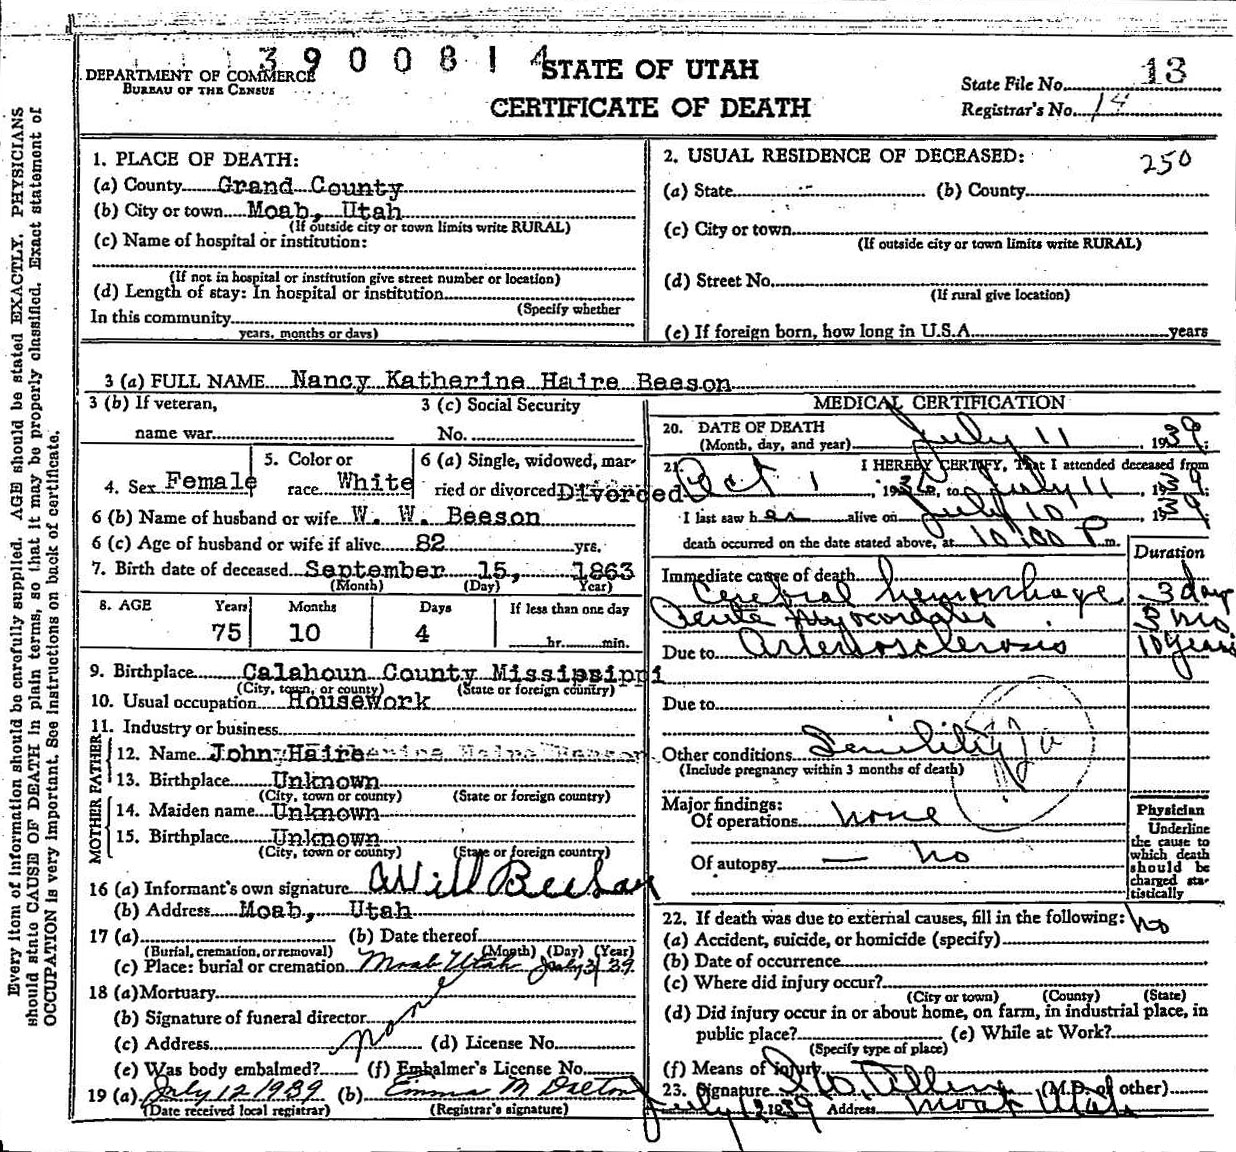 3900814
STATE OF UTAH
CERTIFICATE OF DEATH
DEPARTMENT OF COMMERCE
BUREAU OF THE CENSUS
State File No. 13
Registrar's No. 14
Every item of information should be carefully supplied. AGE should be stated EXACTLY. PHYSICIANS
should state CAUSE OF DEATH in plain terms, so that it may be properly classified. Exact statement of
OCCUPATION is very important. See instructions on back of certificate.
1. PLACE OF DEATH:
(a) County Grand County
(b) City or town Moab, Utah
(If outside city or town limits write RURAL)
(c) Name of hospital or institution:
(If not in hospital or institution give street number or location)
(d) Length of stay: In hospital or institution
(Specify whether
In this community
years, months or days)
2. USUAL RESIDENCE OF DECEASED: 250
(a) State (b) County
(c) City or town
(If outside city or town limits write RURAL)
(d) Street No.
(If rural give location)
(e) If foreign born, how long in U.S.A. years
3 (a) FULL NAME Nancy Katherine Haire Beeson
3 (b) If veteran, 3 (c) Social Security
name war No.
4. Sex Female 5. Color or race White 6 (a) Single, widowed, married or divorced Divorced
6 (b) Name of husband or wife W. W. Beeson
6 (c) Age of husband or wife if alive 82 yrs.
7. Birth date of deceased September 15, 1863
(Month) (Day) Year)
8. AGE Years Months Days If less than one day
75 10 4 hr. min.
9. Birthplace Calahoun County Mississippi
(City, town, or county) (State or foreign country)
10. Usual occupation Housework
11. Industry or business
FATHER
12. Name John Haire
13. Birthplace Unknown
(City, town or county) (State or foreign country)
MOTHER
14. Maiden name Unknown
15. Birthplace Unknown
(City, town or county) (State or foreign country)
16 (a) Informant's own signature Will Beeson
(b) Address Moab, Utah
17 (a) (b) Date thereof
(Burial, cremation, or removal) (Month) (Day) (Year)
(c) Place: burial or cremation Moab Utah July 39
18 (a) Mortuary
(b) Signature of funeral director None
(c) Address (d) License No.
(e) Was body embalmed? (f) Embalmer's License No.
19 (a) July 12 1939 (b) Emma M Dalton
(Date received local registrar) (Registrar's signature)
MEDICAL CERTIFICATION
20. DATE OF DEATH
(Month, day, and year) July 11, 1939;
21. I HEREBY CERTIFY, That I attended deceased from
Oct 1, 1938, to July 11, 1939
I last saw her alive on July 10, 1939
death occurred on the date stated above, at 10:00 P m.
Duration
Immediate cause of death
Cerebral hemorhage 3 days
Acute Myocardates 3 mo.
Due to Arteriosclerosis 10 years
Due to
Other conditions Senility
(Include pregnancy within 3 months of death)
Major findings:
Of operations none
Of autopsy — no
Physician
Underline
the cause to
which death
should be
charged sta-
tistically
22. If death was due to external causes, fill in the following: no
(a) Accident, suicide, or homicide (specify)
(b) Date of occurrence
(c) Where did injury occur?
(City or town) (County) (State)
(d) Did injury occur in or about home, on farm, in industrial place, in
public place? (e) While at Work?
(Specify type of place)
(f) Means of Injury
23. Signature Allen (M.D. of other)
July 12 1939 Address Moab Utah